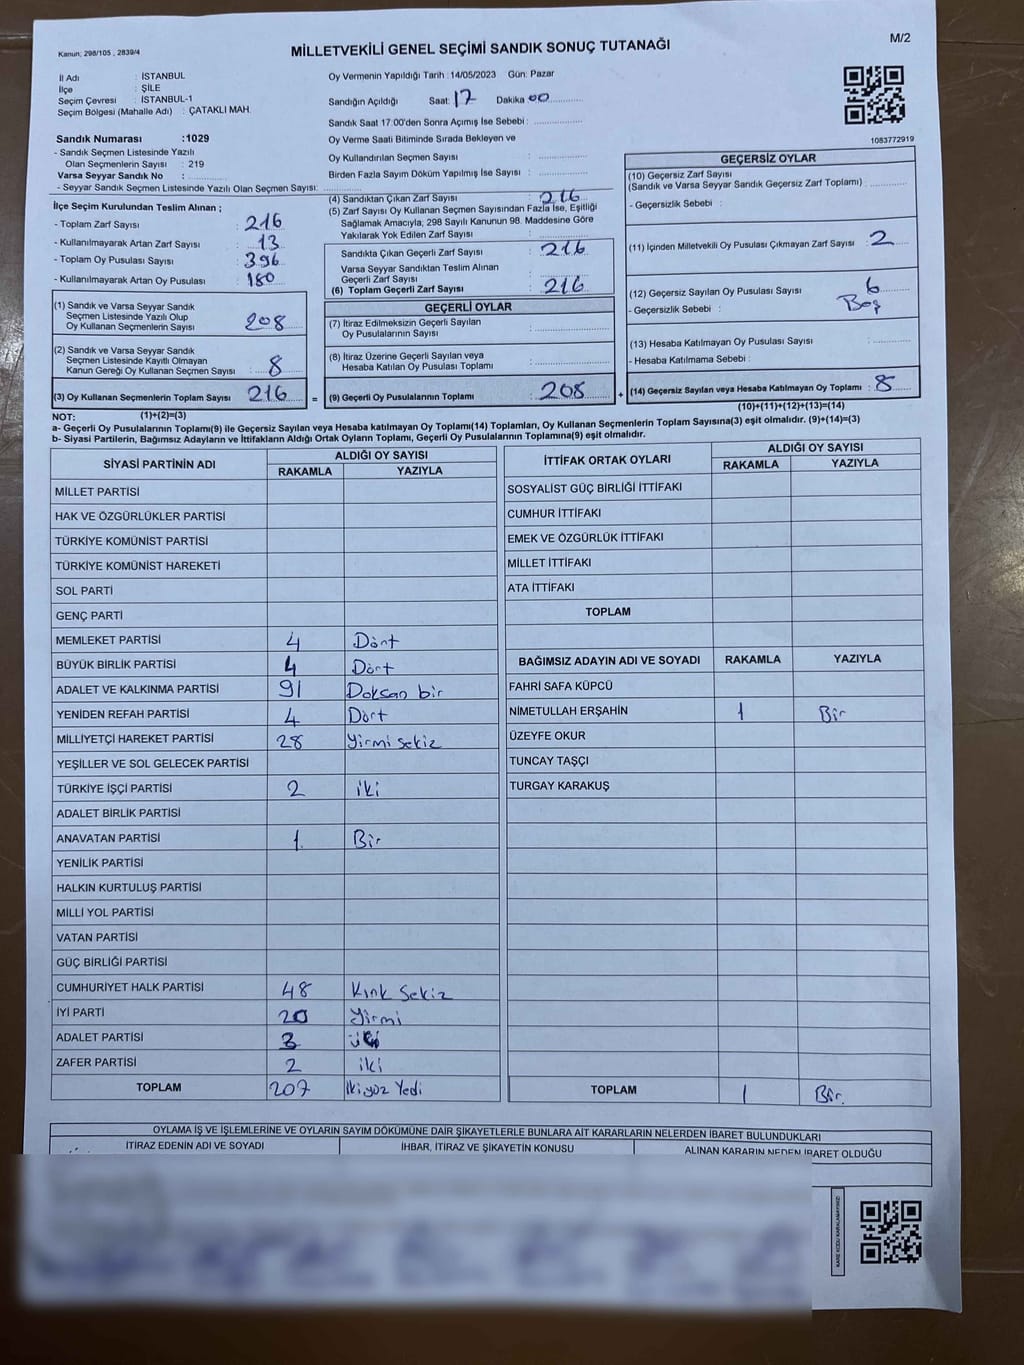 Kanun; 298/105 , 2839/4
MİLLETVEKİLİ GENEL SEÇİMİ SANDIK SONUÇ TUTANAĞI
M/2
İl Adı : İSTANBUL
İlçe : ŞİLE
Seçim Çevresi : İSTANBUL-1
Seçim Bölgesi (Mahalle Adı) : ÇATAKLI MAH.
Sandık Numarası :1029
- Sandık Seçmen Listesinde Yazılı
Olan Seçmenlerin Sayısı : 219
Varsa Seyyar Sandık No :
- Seyyar Sandık Seçmen Listesinde Yazılı Olan Seçmen Sayısı:
Oy Vermenin Yapıldığı Tarih :14/05/2023 Gün: Pazar
Sandığın Açıldığı Saat: 17 Dakika 00
Sandık Saat 17:00'den Sonra Açımış İse Sebebi :
Oy Verme Saati Bitiminde Sırada Bekleyen ve
Oy Kullandırılan Seçmen Sayısı :
Birden Fazla Sayım Döküm Yapılmış İse Sayısı :
1083772919
İlçe Seçim Kurulundan Teslim Alınan ;
- Toplam Zarf Sayısı : 216
- Kullanılmayarak Artan Zarf Sayısı : 13
- Toplam Oy Pusulası Sayısı : 396
- Kullanılmayarak Artan Oy Pusulası : 180
(1) Sandık ve Varsa Seyyar Sandık
Seçmen Listesinde Yazılı Olup
Oy Kullanan Seçmenlerin Sayısı 208
(2) Sandık ve Varsa Seyyar Sandık
Seçmen Listesinde Kayıtlı Olmayan
Kanun Gereği Oy Kullanan Seçmen Sayısı : 8
(3) Oy Kullanan Seçmenlerin Toplam Sayısı 216
(4) Sandıktan Çıkan Zarf Sayısı : 216
(5) Zarf Sayısı Oy Kullanan Seçmen Sayısından Fazla İse, Eşitliği
Sağlamak Amacıyla; 298 Sayılı Kanunun 98. Maddesine Göre
Yakılarak Yok Edilen Zarf Sayısı :
Sandıkta Çıkan Geçerli Zarf Sayısı : 216
Varsa Seyyar Sandıktan Teslim Alınan
Geçerli Zarf Sayısı :
(6) Toplam Geçerli Zarf Sayısı : 216
GEÇERLİ OYLAR
(7) İtiraz Edilmeksizin Geçerli Sayılan
Oy Pusulalarının Sayısı :
(8) İtiraz Üzerine Geçerli Sayılan veya
Hesaba Katılan Oy Pusulası Toplamı :
= (9) Geçerli Oy Pusulalarının Toplamı : 208
GEÇERSİZ OYLAR
(10) Geçersiz Zarf Sayısı
(Sandık ve Varsa Seyyar Sandık Geçersiz Zarf Toplamı) :
- Geçersizlik Sebebi :
(11) İçinden Milletvekili Oy Pusulası Çıkmayan Zarf Sayısı : 2
(12) Geçersiz Sayılan Oy Pusulası Sayısı : 6
- Geçersizlik Sebebi : Boş
(13) Hesaba Katılmayan Oy Pusulası Sayısı :
- Hesaba Katılmama Sebebi :
+ (14) Geçersiz Sayılan veya Hesaba Katılmayan Oy Toplamı : 8
NOT: (1)+(2)=(3) (10)+(11)+(12)+(13)=(14)
a- Geçerli Oy Pusulasının Toplamı(9) ile Geçersiz Sayılan veya Hesaba katılmayan Oy Toplamı(14) Toplamları, Oy Kullanan Seçmenlerin Toplam Sayısına(3) eşit olmalıdır. (9)+(14)=(3)
b- Siyasi Partilerin, Bağımsız Adayların ve İttifakların Aldığı Ortak Oyların Toplamı, Geçerli Oy Pusulalarının Toplamına(9) eşit olmalıdır.
SİYASİ PARTİNİN ADI ALDIĞI OY SAYISI
RAKAMLA YAZIYLA
MİLLET PARTİSİ
HAK VE ÖZGÜRLÜKLER PARTİSİ
TÜRKİYE KOMÜNİST PARTİSİ
TÜRKİYE KOMÜNİST HAREKETİ
SOL PARTİ
GENÇ PARTİ
MEMLEKET PARTİSİ 4 Dört
BÜYÜK BİRLİK PARTİSİ 4 Dört
ADALET VE KALKINMA PARTİSİ 91 Doksan bir
YENİDEN REFAH PARTİSİ 4 Dört
MİLLİYETÇİ HAREKET PARTİSİ 28 Yirmi sekiz
YEŞİLLER VE SOL GELECEK PARTİSİ
TÜRKİYE İŞÇİ PARTİSİ 2 iki
ADALET BİRLİK PARTİSİ
ANAVATAN PARTİSİ 1 Bir
YENİLİK PARTİSİ
HALKIN KURTULUŞ PARTİSİ
MİLLİ YOL PARTİSİ
VATAN PARTİSİ
GÜÇ BİRLİĞİ PARTİSİ
CUMHURİYET HALK PARTİSİ 48 Kırk Sekiz
İYİ PARTİ 20 Yirmi
ADALET PARTİSİ 3 üç
ZAFER PARTİSİ 2 iki
TOPLAM 207 İkiyüz Yedi
İTTİFAK ORTAK OYLARI ALDIĞI OY SAYISI
RAKAMLA YAZIYLA
SOSYALİST GÜÇ BİRLİĞİ İTTİFAKI
CUMHUR İTTİFAKI
EMEK VE ÖZGÜRLÜK İTTİFAKI
MİLLET İTTİFAKI
ATA İTTİFAKI
TOPLAM
BAĞIMSIZ ADAYIN ADI VE SOYADI RAKAMLA YAZIYLA
FAHRİ SAFA KÜPCÜ
NİMETULLAH ERŞAHİN 1 Bir
ÜZEYFE OKUR
TUNCAY TAŞÇI
TURGAY KARAKUŞ
TOPLAM 1 Bir.
OYLAMA İŞ VE İŞLEMLERİNE VE OYLARIN SAYIM DÖKÜMÜNE DAİR ŞİKAYETLERLE BUNLARA AİT KARARLARIN NELERDEN İBARET BULUNDUKLARI
İTİRAZ EDENİN ADI VE SOYADI İHBAR, İTİRAZ VE ŞİKAYETİN KONUSU ALINAN KARARIN NEDEN İBARET OLDUĞU
KARE KODU KARALAMAYINIZ!